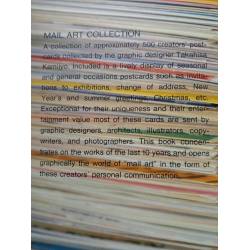 MAIL ART COLLECTION
A collection of approximately 500 creators' post-
cards collected by the graphic designer Takahisa
Kamijyo. Included is a lively display of seasonal
and general occasions postcards such as invita-
tions to exhibitions, change of address, New
Year's and summer greetings, Christmas, etc.
Exceptional for their uniqueness and their enter-
tainment value most of these cards are sent by
graphic designers, architects, illustrators, copy-
writers, and photographers. This book concen-
trates on the works of the last 10 years and opens
graphically the world of "mail art" in the form
of these creators' personal communication.